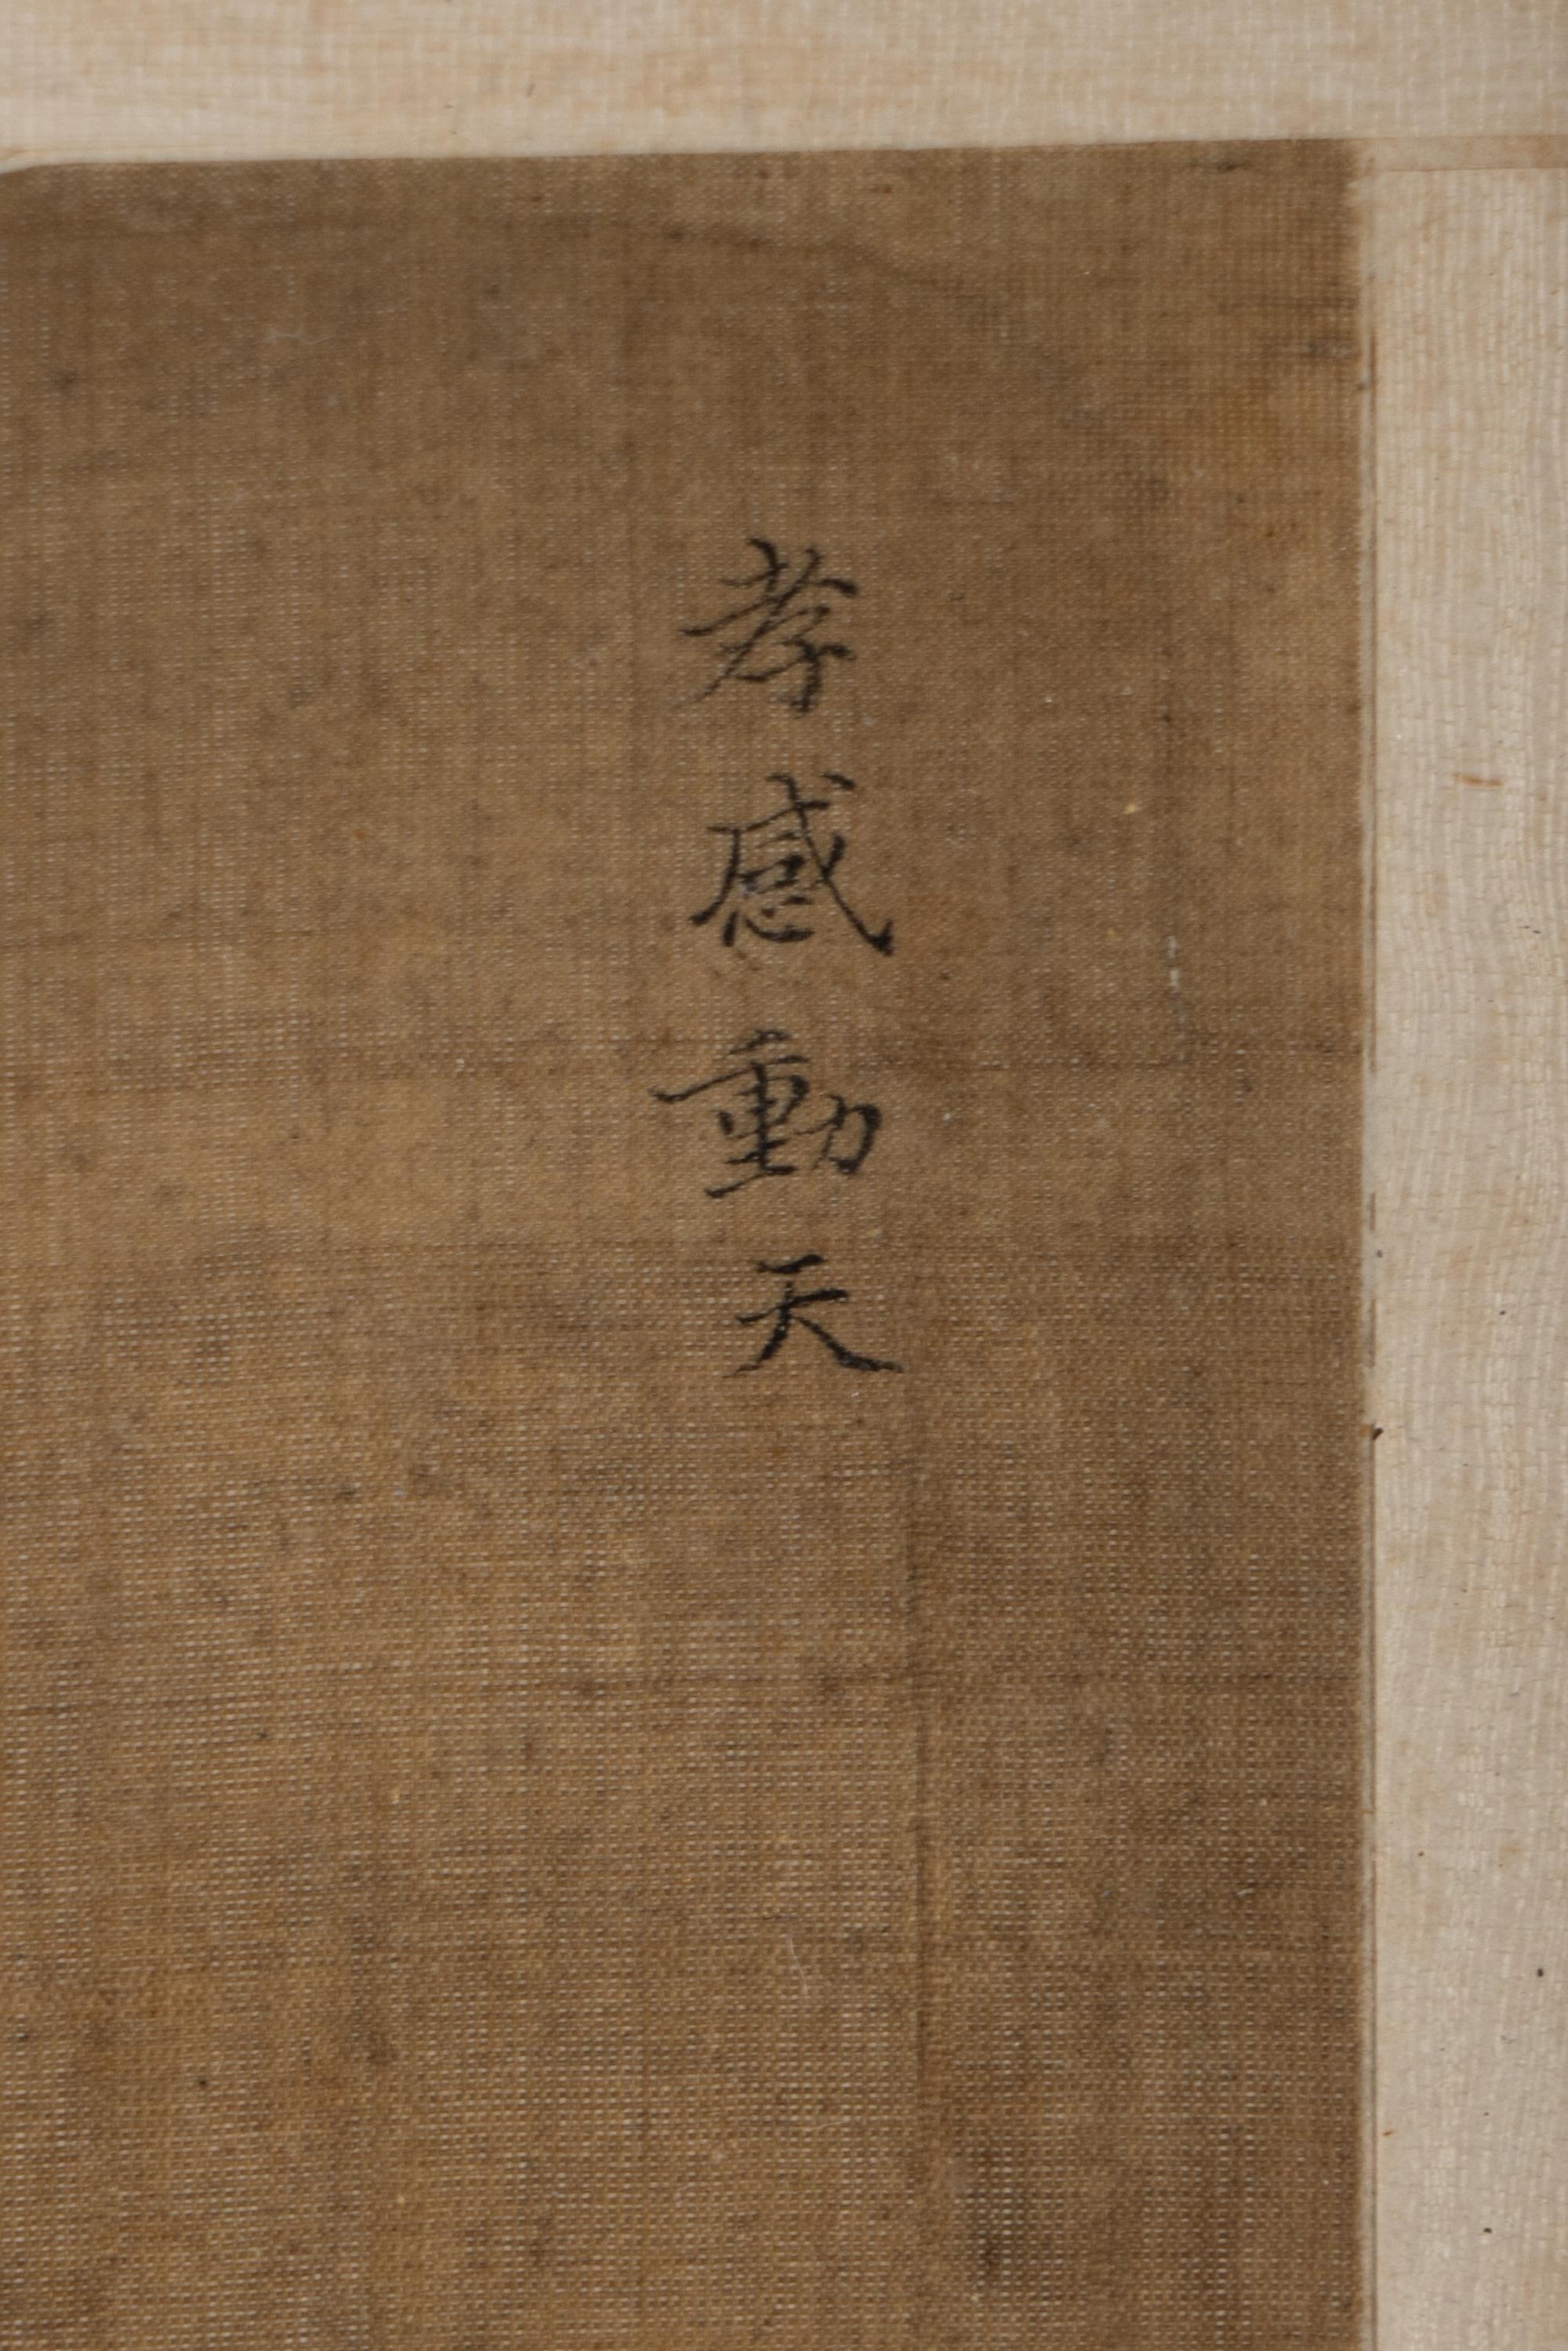 孝感動天